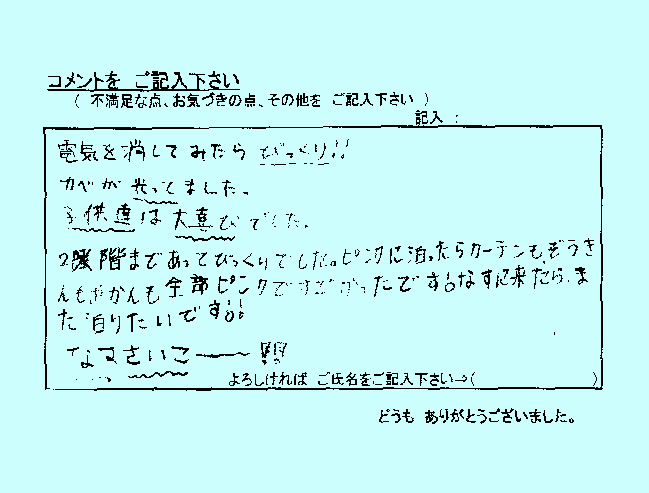 コメントを ご記入下さい
( 不満足な点、お気づきの点、その他を ご記入下さい )
記入 :
電気を消してみたら びっくり!!
カベが 光ってました。
子供達は 大喜びでした。
2階階まであってびっくりでした。ピンクに泊ったらカーテンもぞうき
んもやかんも 全部 ピンクですごかったです!!なすに来たら、ま
た 泊りたいです!!
なすさいこー !!!
よろしければ ご氏名をご記入下さい⇒( )
どうも ありがとうございました。